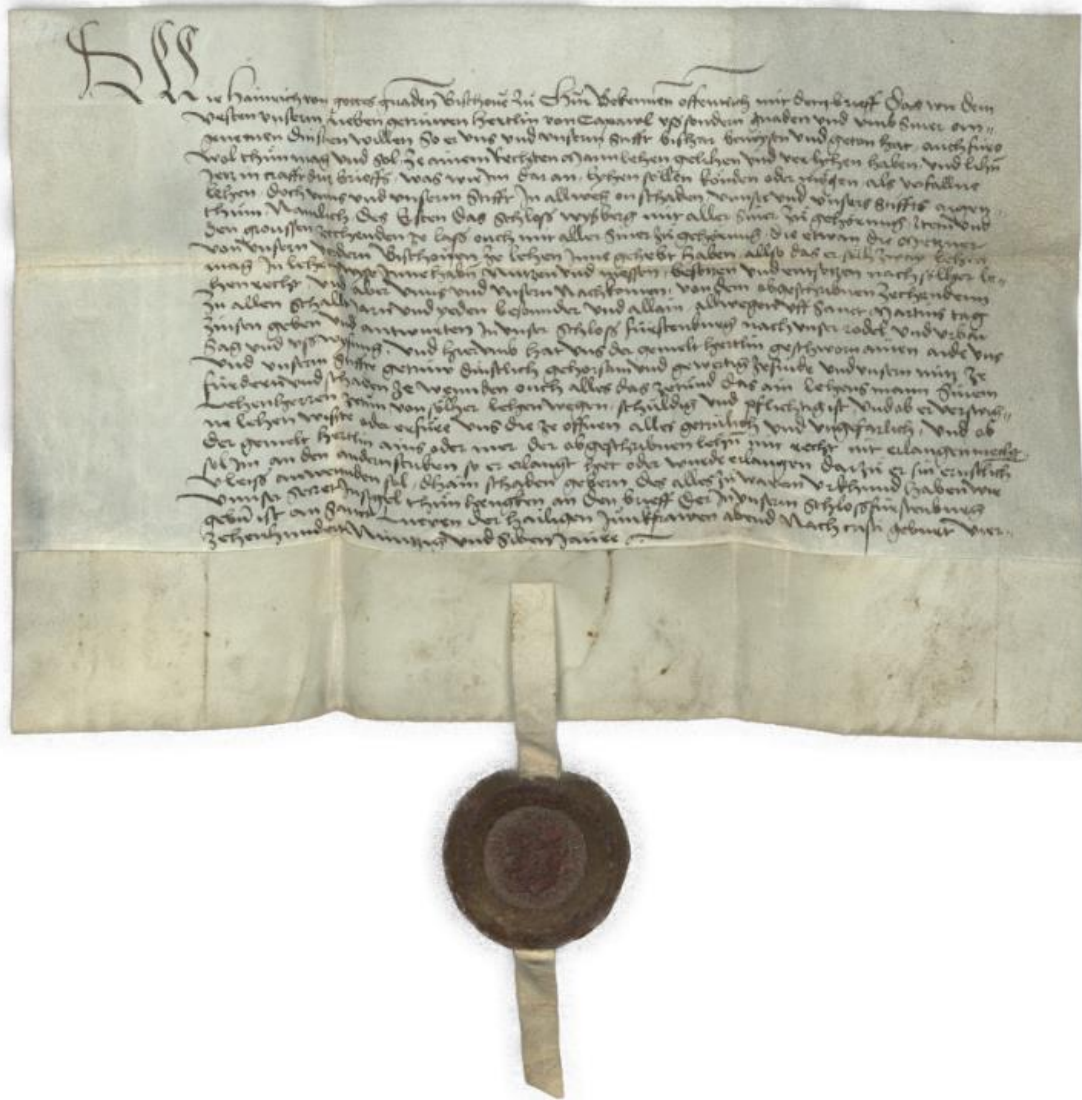 Wir Hainrich von gottes gnaden Bischoue zů Chur Bekennen offentlich mit dem brieff Das wir dem
vesten vnserm lieben getrüwen Hertlin von Capawl vß sondern gnaden vnd vmb siner an⸗
genemen dinsten willen So er vns vnd vnserm Stifft bishar bewysen vnd getan hat, auch füro
wol thůn mag vnd sol, ze ainem rechten Mannlehen gelihen vnd verlyhen haben, vnd lihen
Jetz in crafft diß brieffs, was wir im dar an lyhen söllen könden oder mögen, als verfallne
lehen, doch vnns vnd vnserm Stifft in allweg on schaden vnnser vnd vnsers Stiffts aigen⸗
thům, Namlich Des Ersten das Schloss wyßberg mit aller siner zů gehörung, Item vnd
den groussen zechenden ze lafs ouch mit aller siner zů gehörung, die etwan die Metzner
von vnsern vordern Bischouen ze lehen inne gehebt haben, allso das er sölh zway lehen
mag in lehens wyse innehaben nutzen vnd niessen, besetzen vnd entsetzen nach söllher le⸗
hen recht, vnd aber vnns vnd vnsern Nachkomen, von dem obgeschribnen zechenden
zu allen Jarn vnd yeden besonder vnd allain allwegen vff Sanct Martins tag
zinsen geben vnd antwurten in vnser Schloss fürstenburg nach vnser rodel vnd vrbar
sag vnd vß wysung, vnd hierumb hat vns der gemelt Hertlin geschworn ainen aide vns
vnd vnserm Stifft getrüw dinstlich gehorsam vnd gewertig ze sinde vnd vnsern nutz ze
fürdern vnd schaden ze wennden ouch alles das ze tund das ain lehens mann sinem
Lehenherren von söllher lehen wegen, schuldig vnd pflichtig ist vnd ob er verswig⸗
ne lehen wiste oder erfüre vns die ze offnen alles getrülich vnd vngefarlich, vnd ob
der gemelt Hertlin ains oder mer der obgeschribnen lehen mit recht nit erlangen
sol im an den andern stuken so er erlangt het oder wurde erlangen dar zů er sin ernstlich
vleiss anwennden sol, dhain schaden gebern, des alles zů warem vrkhund haben wir
vnnser Secret Insigel thůn hencken an den brieff Der in vnserm Schloss fürstenburg
geben ist an Sanct Lucyen der hailigen Junckfrawen abend Nach cristi geburt vier⸗
zehenhundert Nüntzig vnd Siben Jaure